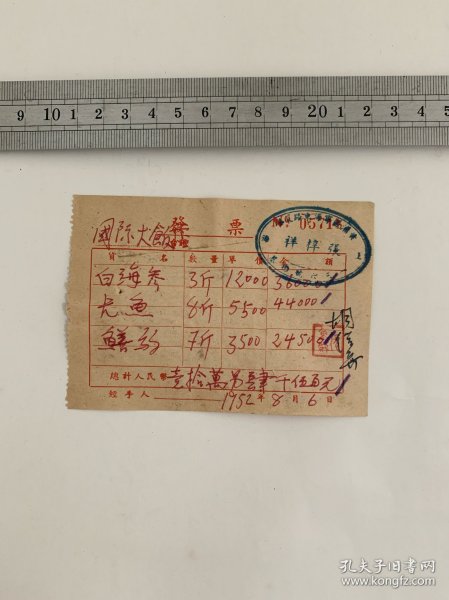 9 10 1 2 3 4 5 6 7 8 9 20 1 2
發票
0571
國际大飯
張樟祥
貨名 數量 單價 金額
白海参 3斤 12000 36000
尤魚 8斤 5500 44000
7斤 3500 24500
總計人民幣壹拾萬另肆千伍百元
經手人 1952年8月6日
孔夫子旧书网
www.kongfz.com